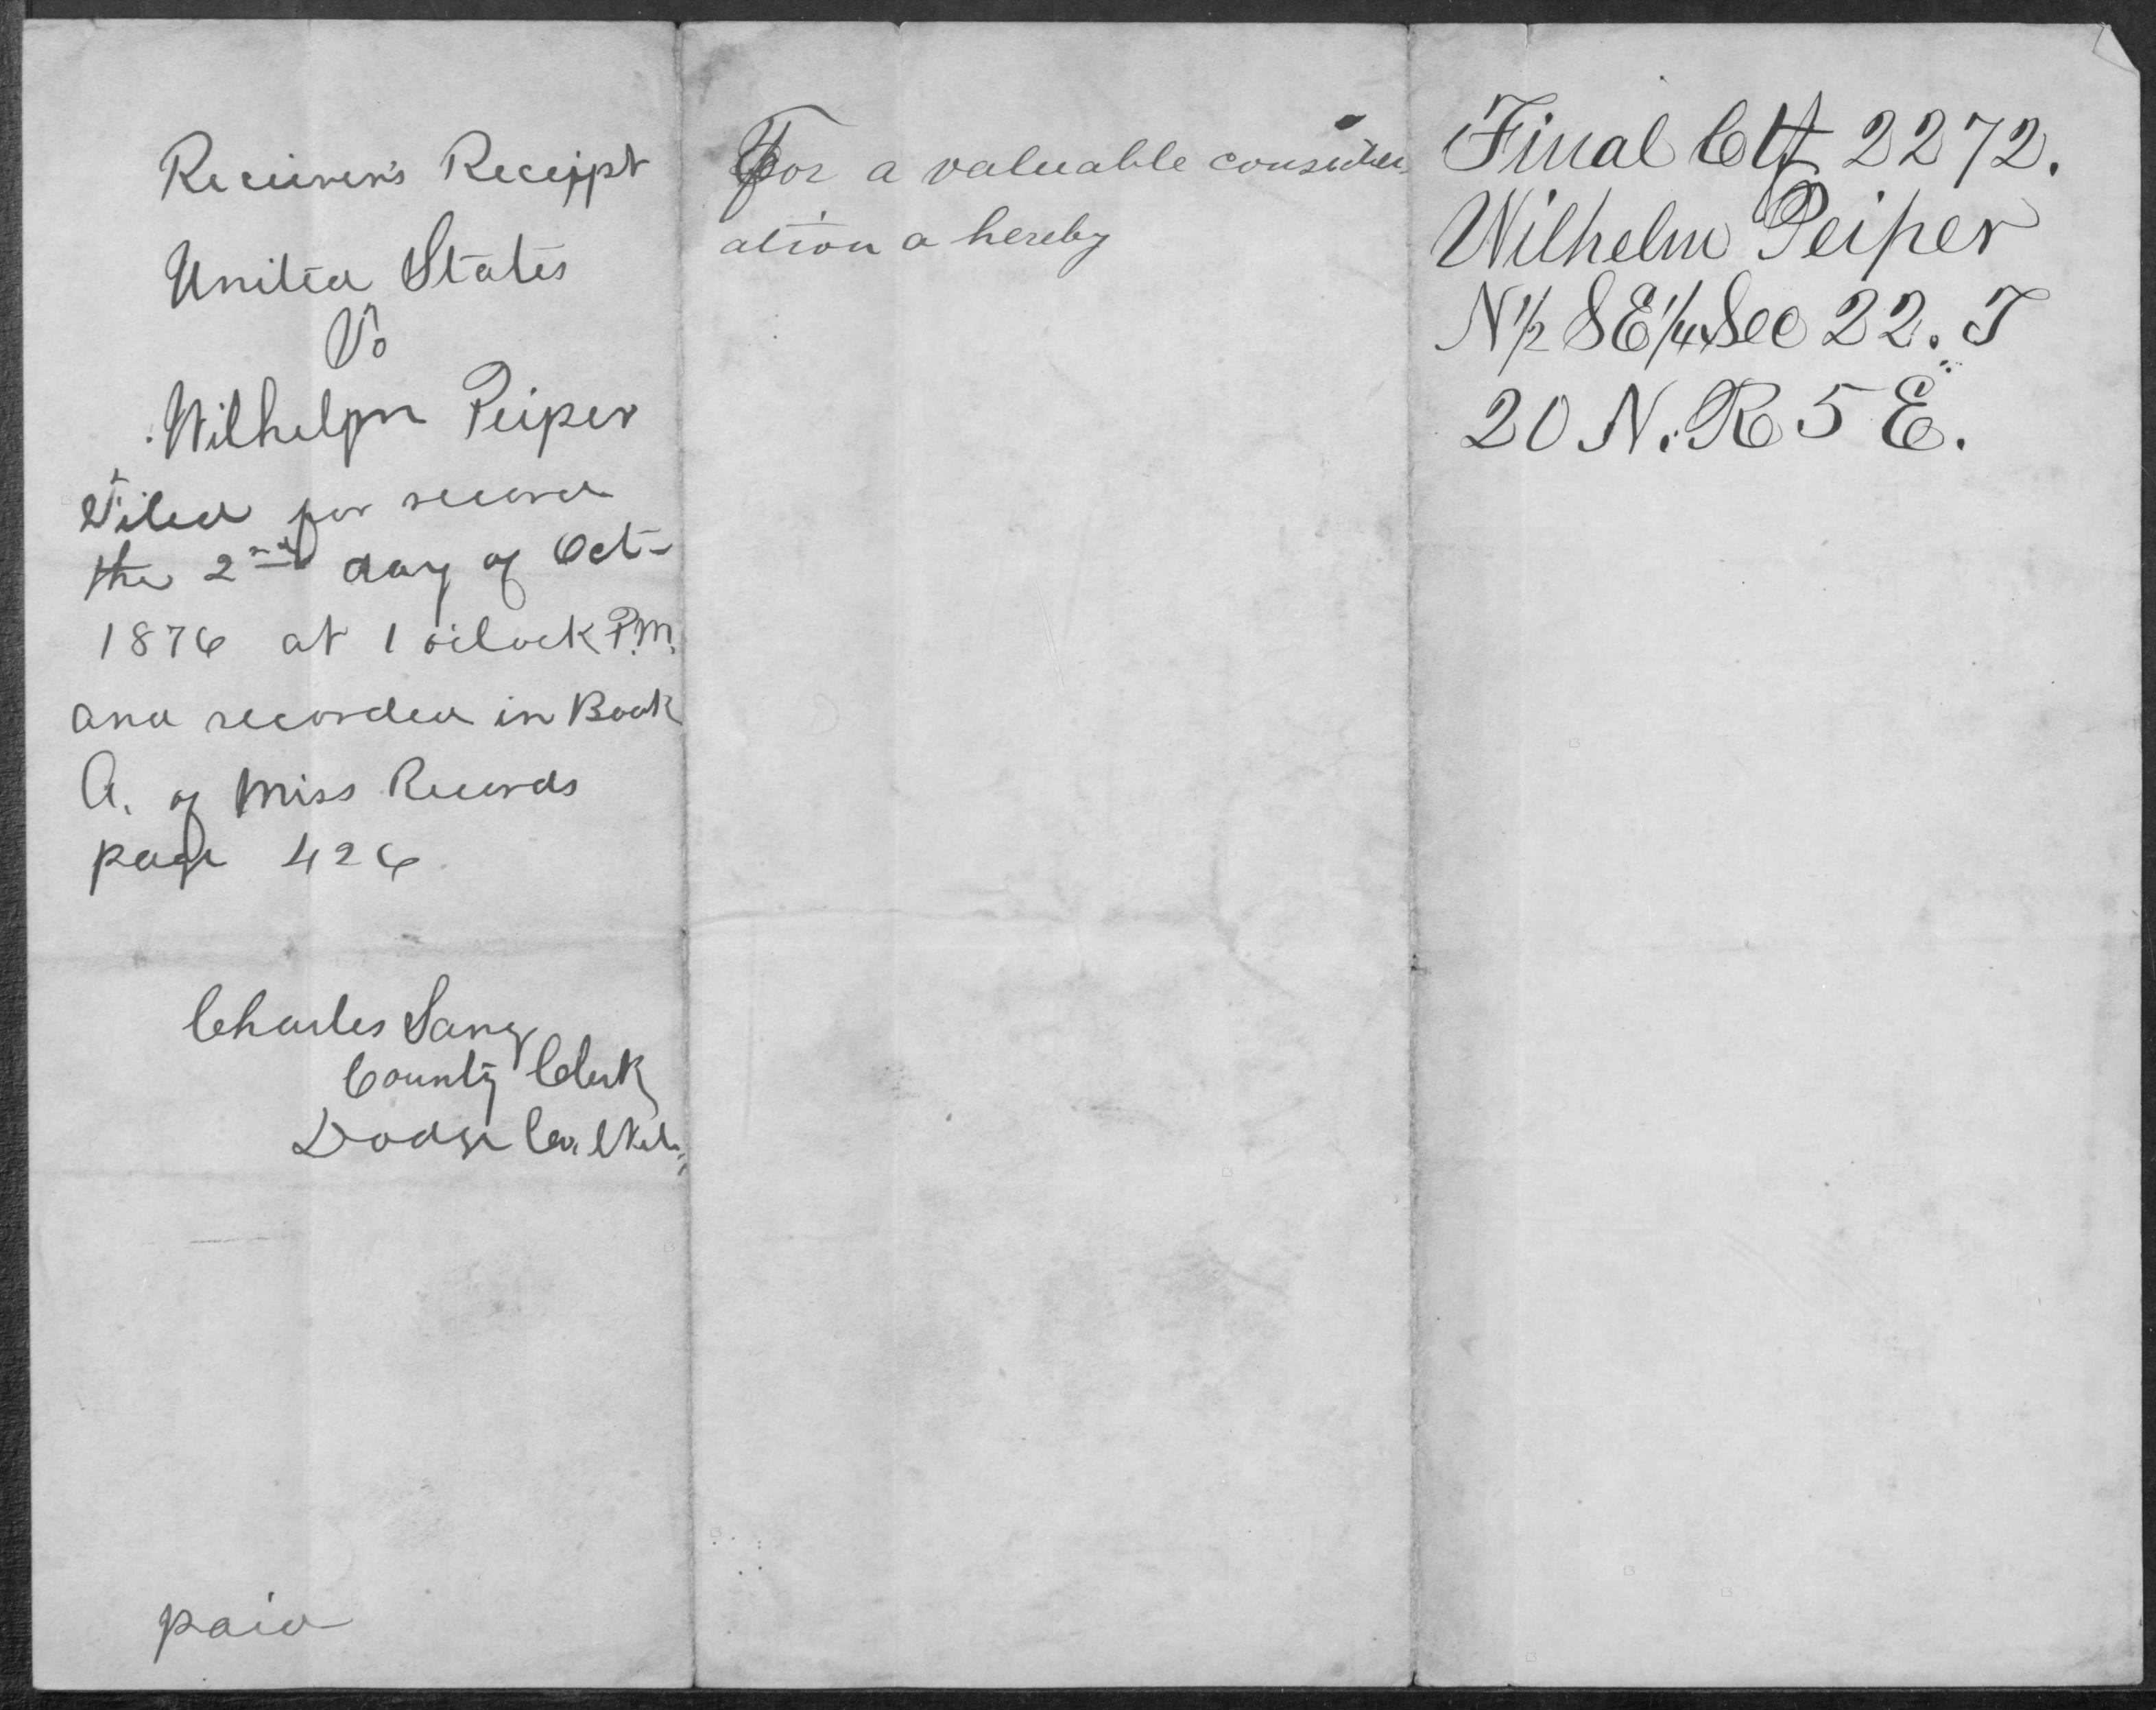 Receiver's Receippt
United States
To
Wilhelm Peiper
Filed for record
the 2nd day of Oct-
1876 at 1 oclock P.M.
and recorded in Book
A. of Miss Records
page 426
Charles Sang
County Clerk
Dodge Co. Neb.
paid
For a valuable consider-
ation a hereby
Final Ctf 2272.
Wilhelm Peiper
N½ SE¼ Sec 22. T
20 N. R 5 E.